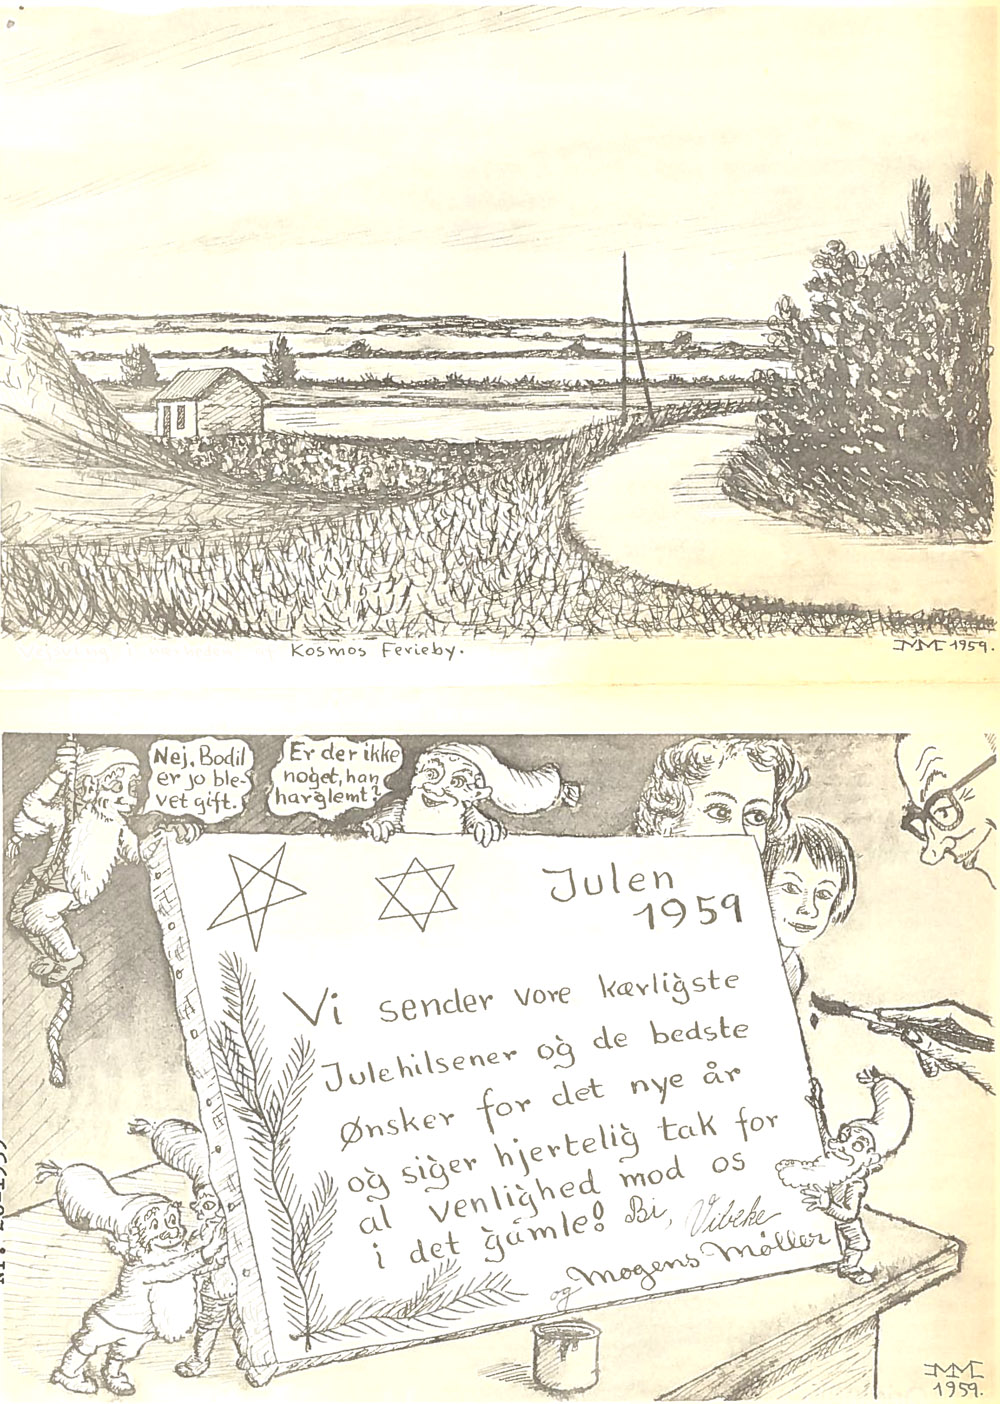 Vejsving i nærheden af Kosmos Ferieby.
MM 1959.
Nej, Bodil
er jo ble-
vet gift.
Er der ikke
noget, han
har glemt?
Julen
1959
Vi sender vore kærligste
Julehilsener og de bedste
Ønsker for det nye år
og siger hjertelig tak for
al venlighed mod os
i det gamle! Bi, Vibeke
og Mogens Møller
MM
1959.